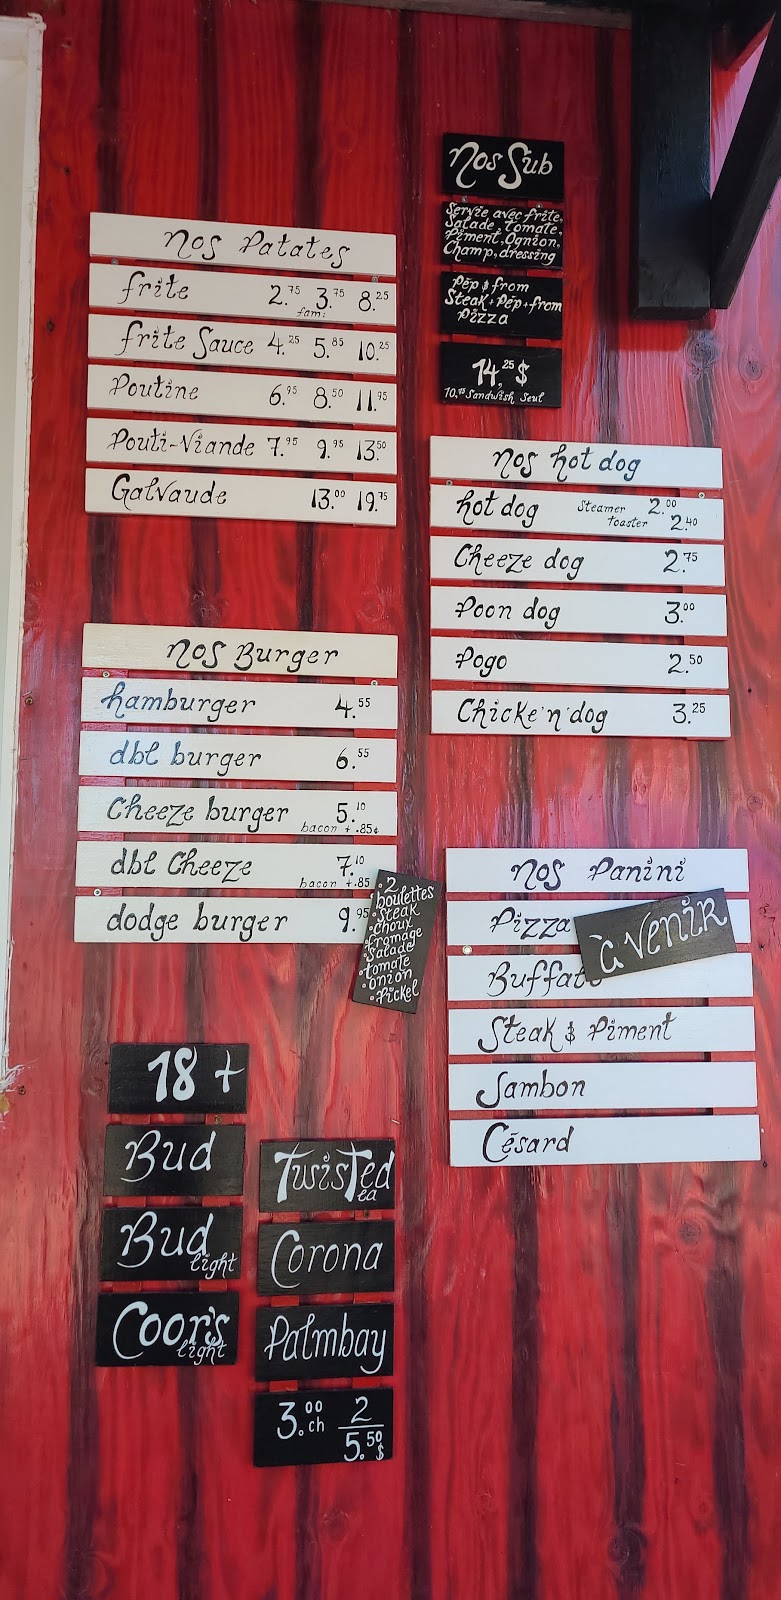 Nos Patates
frite 2.75 3.75 8.25
fam:
frite Sauce 4.25 5.85 10.25
Poutine 6.95 8.50 11.95
Pouti-Viande 7.95 9.95 13.50
Galvaude 13.00 19.75
Nos Sub
Servie avec frite,
Salade, Tomate,
Piment, Ognion,
Champ, dressing
Pep & from
Steak + Pép + from
Pizza
14,25 $
10.75 Sandwish Seul
nos hot dog
hot dog Steamer 2.00
toaster 2.40
Cheeze dog 2.75
Poon dog 3.00
Pogo 2.50
Chicke'n'dog 3.25
nos Burger
hamburger 4.55
dbl burger 6.55
Cheeze burger 5.10
bacon + .85¢
dbl Cheeze 7.10
bacon +.85
dodge burger 9.95
• 2
boulettes
• Steak
• choux
• fromage
• Salade
• tomate
• onion
• Pickel
nos Panini
Pizza
à VENIR
Buffalo
Steak & Piment
Jambon
Césard
18 +
Bud
Bud
light
Coor's
light
Twisted
tea
Corona
Palmbay
3.00 ch 2
5.50 $